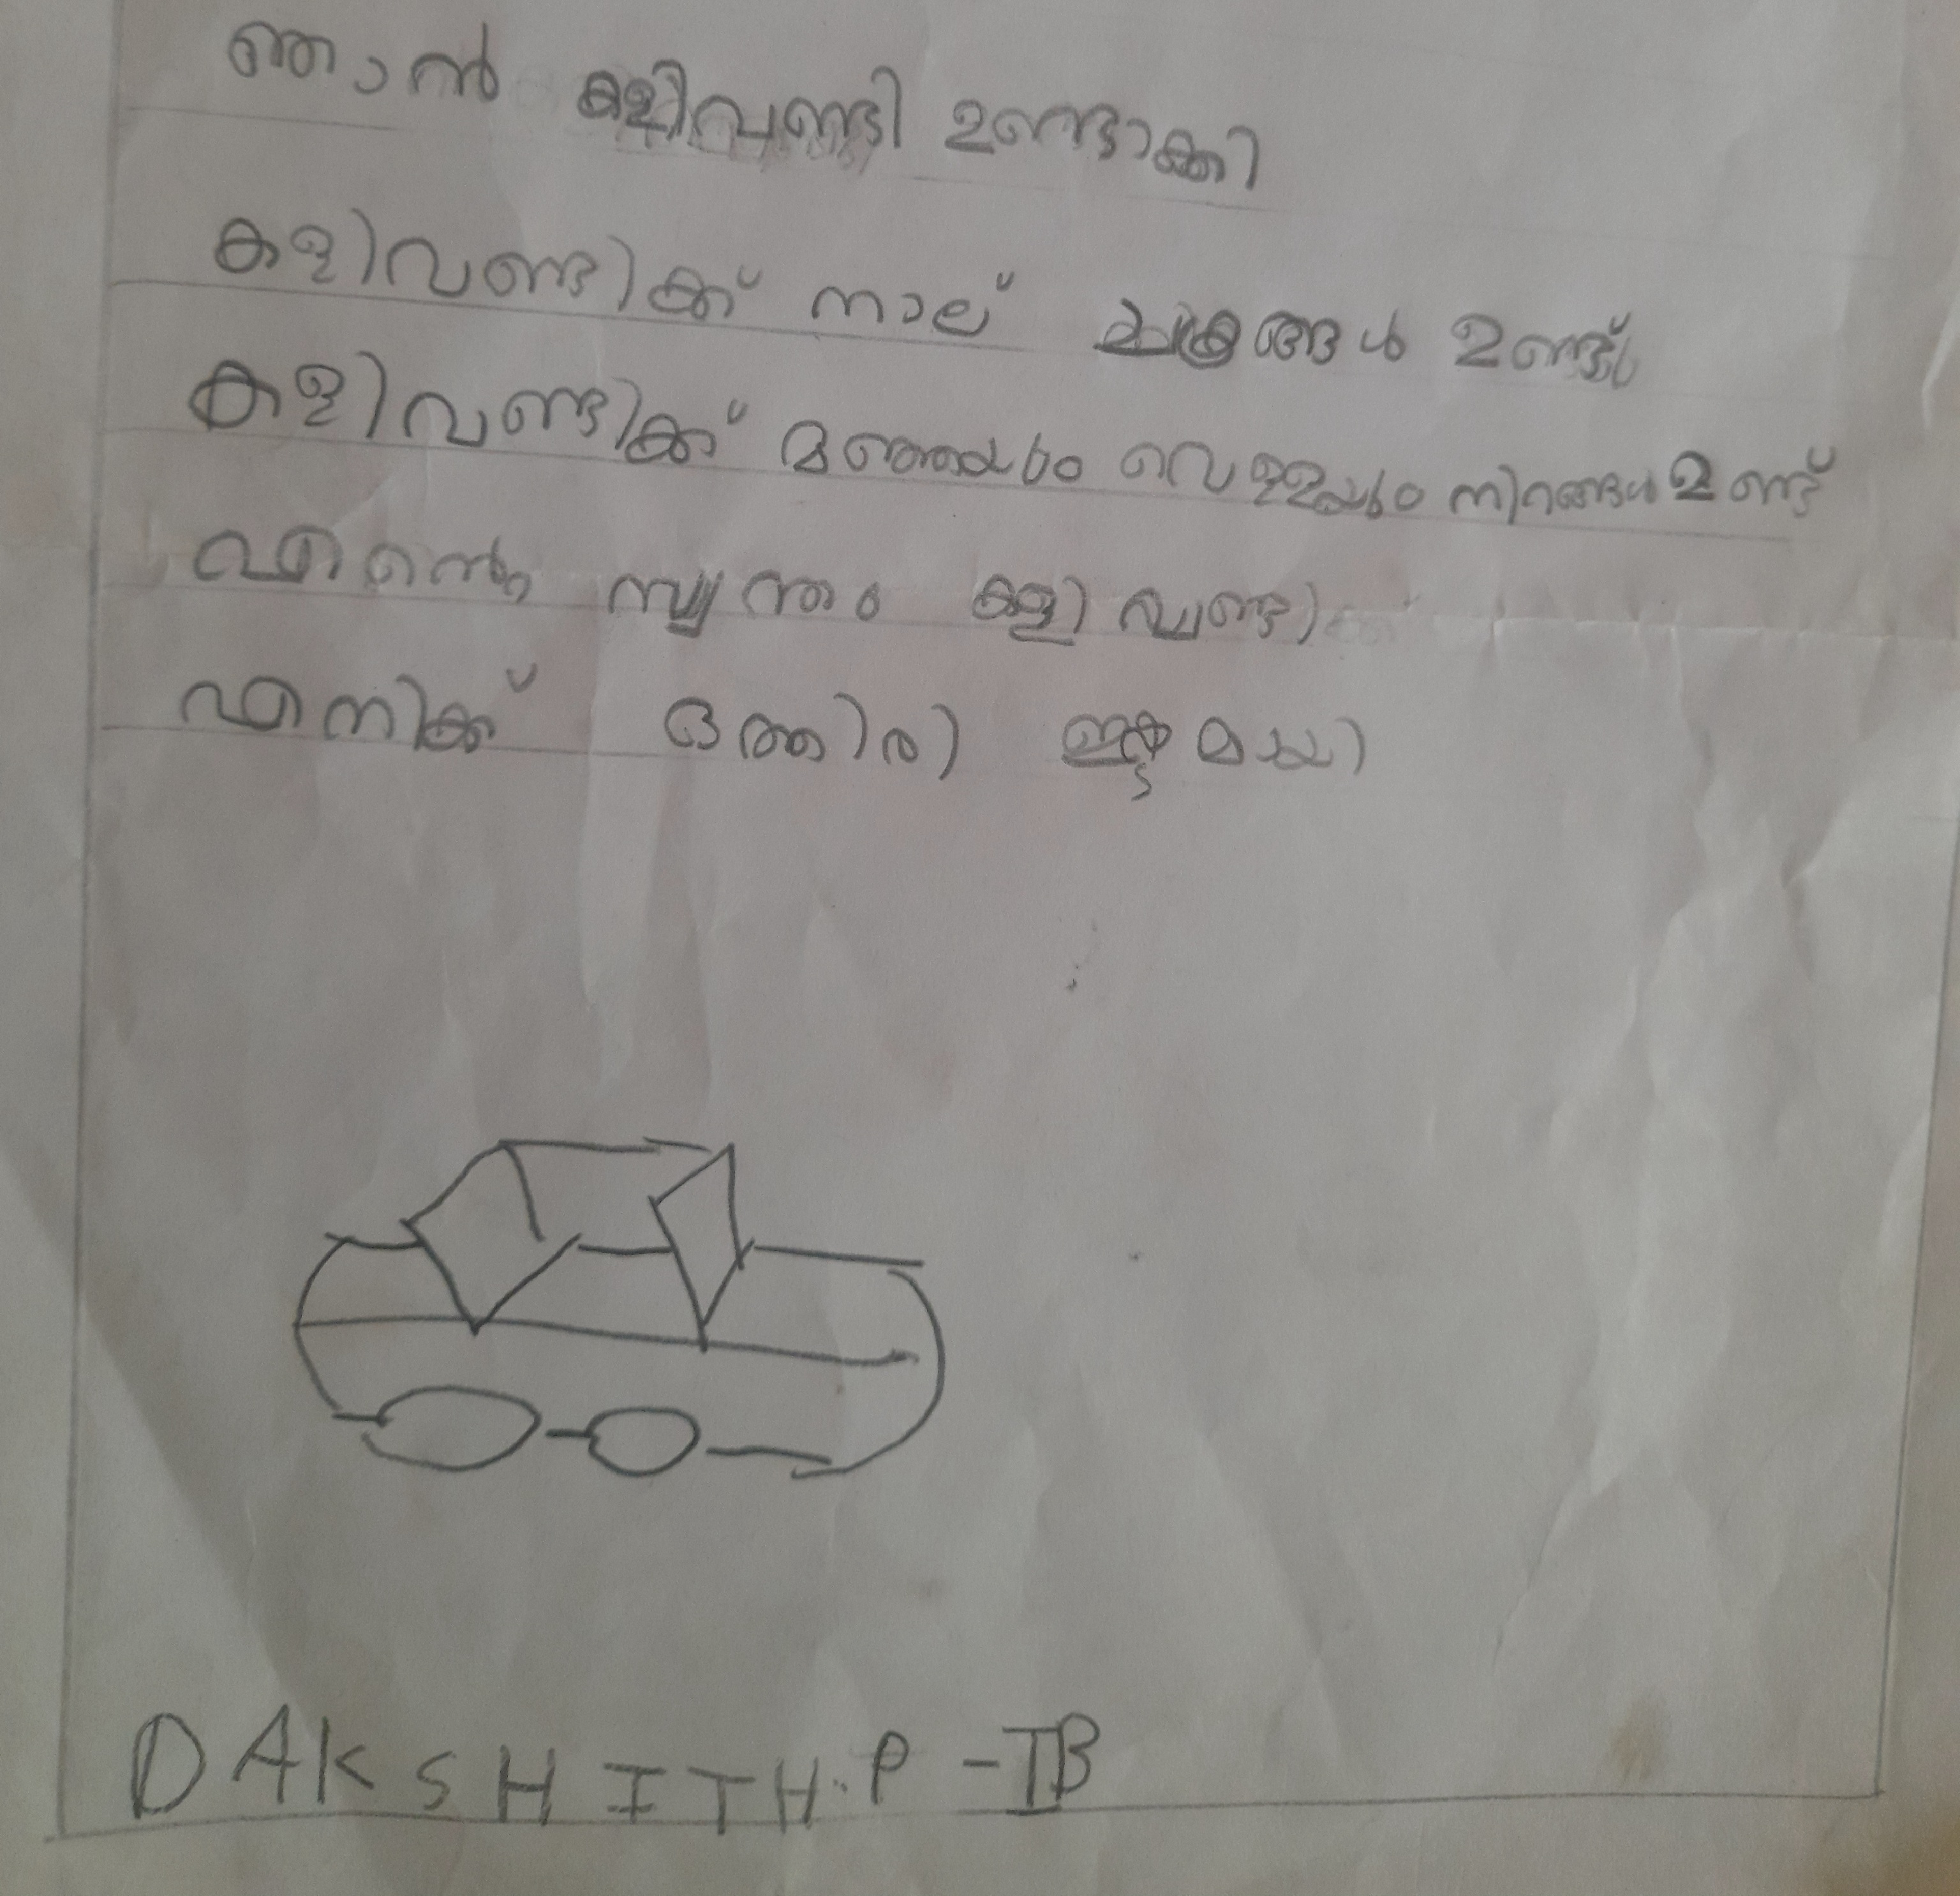 ഞാൻ കളിവണ്ടി ഉണ്ടാക്കി
കളിവണ്ടിക്ക് നാല് ചക്രങ്ങൾ ഉണ്ട്
കളിവണ്ടിക്ക് മഞ്ഞയും വെള്ളയും നിറങ്ങൾ ഉണ്ട്
എന്റെ സ്വന്തം കളിവണ്ടി
എനിക്ക് ഒത്തിരി ഇഷ്ടമായി
DAKSHITH.P - IB